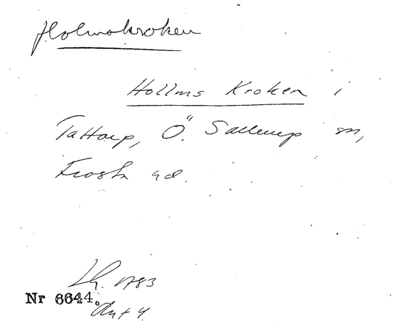 Holmakroken
Hollms Kroken i
Tattarp, Ö. Sallerup sn,
Frosta hd.
1783
Nr 6644.
Akt 4